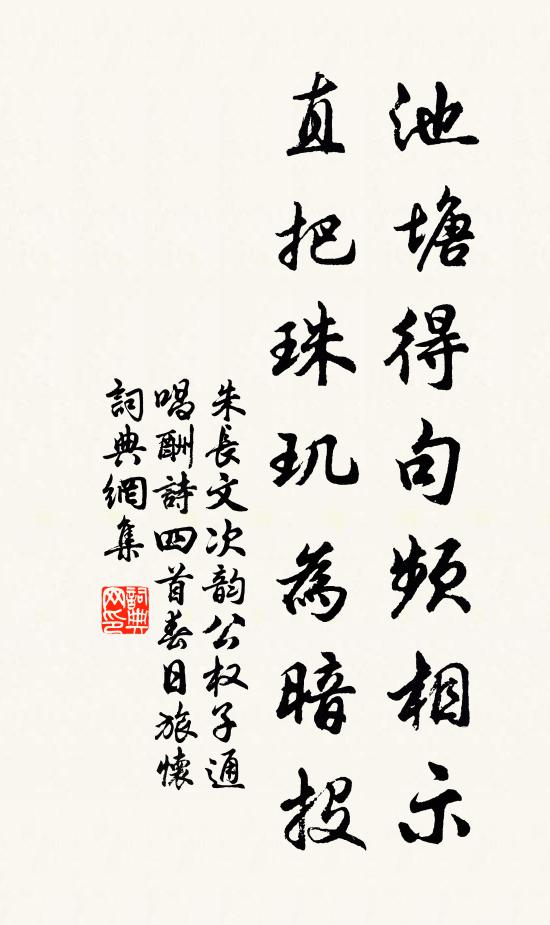 池塘得句頻相示
直把珠玑為暗投
朱長文次韵公权子通
唱酬詩四首春日旅懷
詞典網集
詞典网印